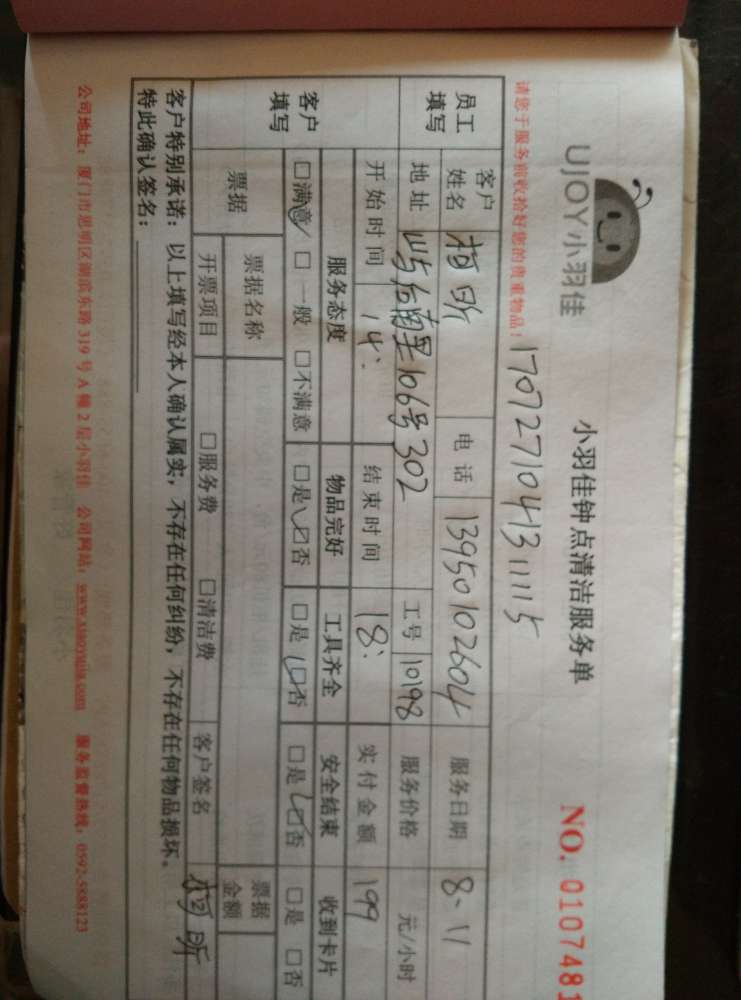 UJOY小羽佳
小羽佳钟点清洁服务单
NO. 0107481
请您于服务前收拾好您的贵重物品!
1707271041311115
员工填写
客户姓名 柯昕 电话 13950102604 服务日期 8-11
地址 屿后南里106号302 工号 10198 服务价格 元/小时
开始时间 14: 结束时间 18: 实付金额 199
客户填写
服务态度 物品完好 工具齐全 安全结束 收到卡片
□满意 □一般 □不满意 □是 □否 □是 □否 □是 □否 □是 □否
票据 票据名称 票据金额
开票项目 □服务费 □清洁费 客户签名 柯昕
客户特别承诺:以上填写经本人确认属实,不存在任何纠纷,不存在任何物品损坏。
特此确认签名:
公司地址:厦门市思明区湖滨东路319号A幢2层小羽佳 公司网站:www.xiaoyujia.com 服务监督热线:0592-5888123